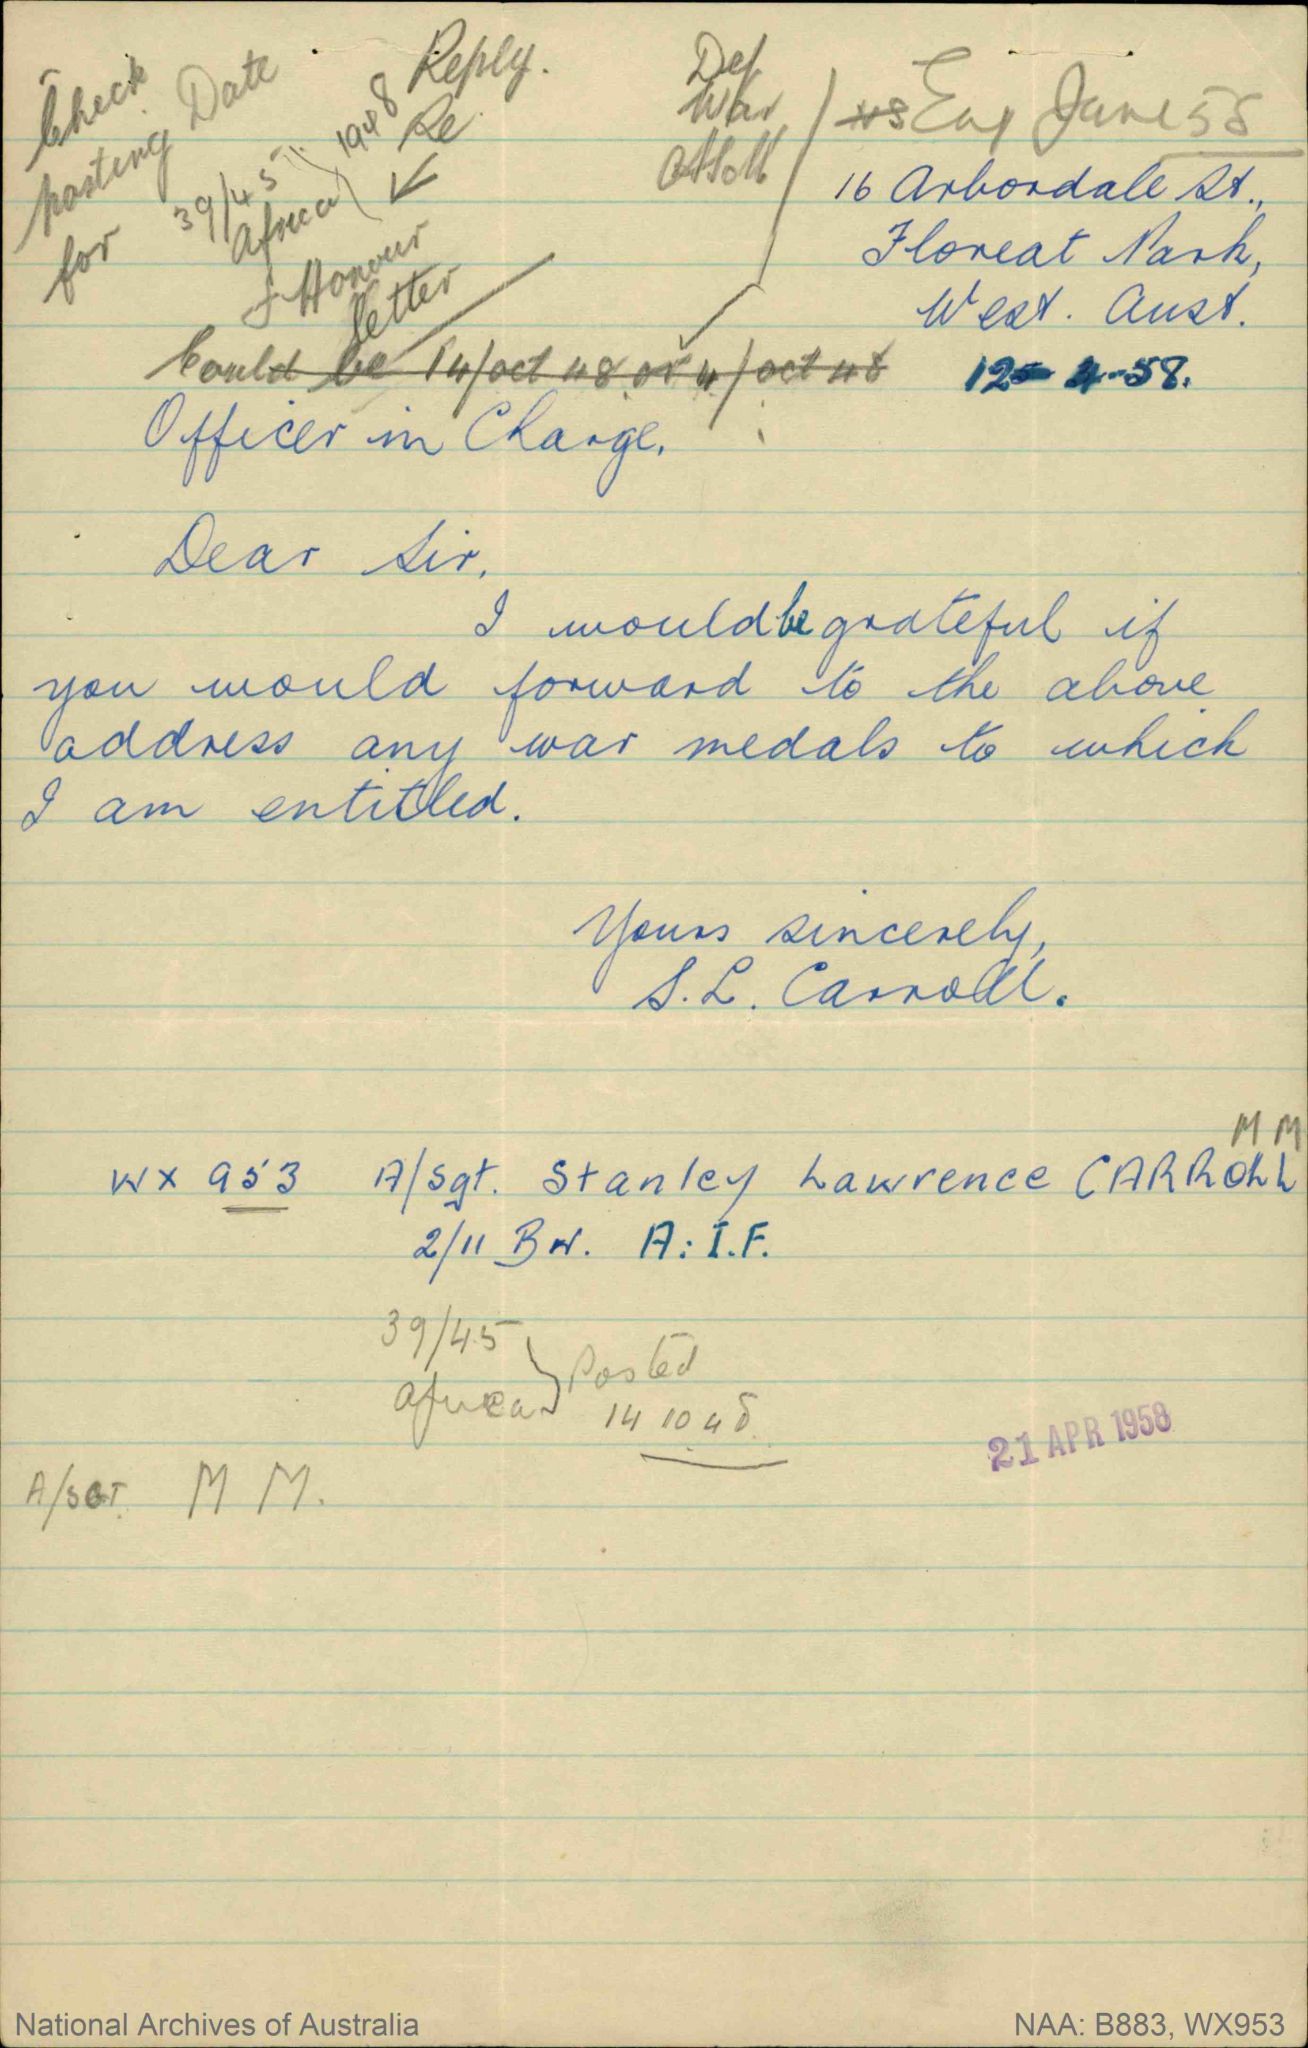 Check
posting Date
for
39/45
Africa
1948
Reply.
Re
& Honour
letter
Def
War
/ Eng June 58
16 Arbordale St.,
Floreat Park,
West. Aust.
Could be 14/oct 48 or 4/oct 48
12-4-58.
Officer in Charge,
Dear Sir,
I would be grateful if
you would forward to the above
address any war medals to which
I am entitled.
Yours sincerely,
S. L. Carroll.
M M
WX 953 A/Sgt. Stanley Lawrence CARROLL
2/11 BN. A.I.F.
39/45
Africa } Posted
14 10 48
21 APR 1958
A/SGT. M M.
National Archives of Australia
NAA: B883, WX953